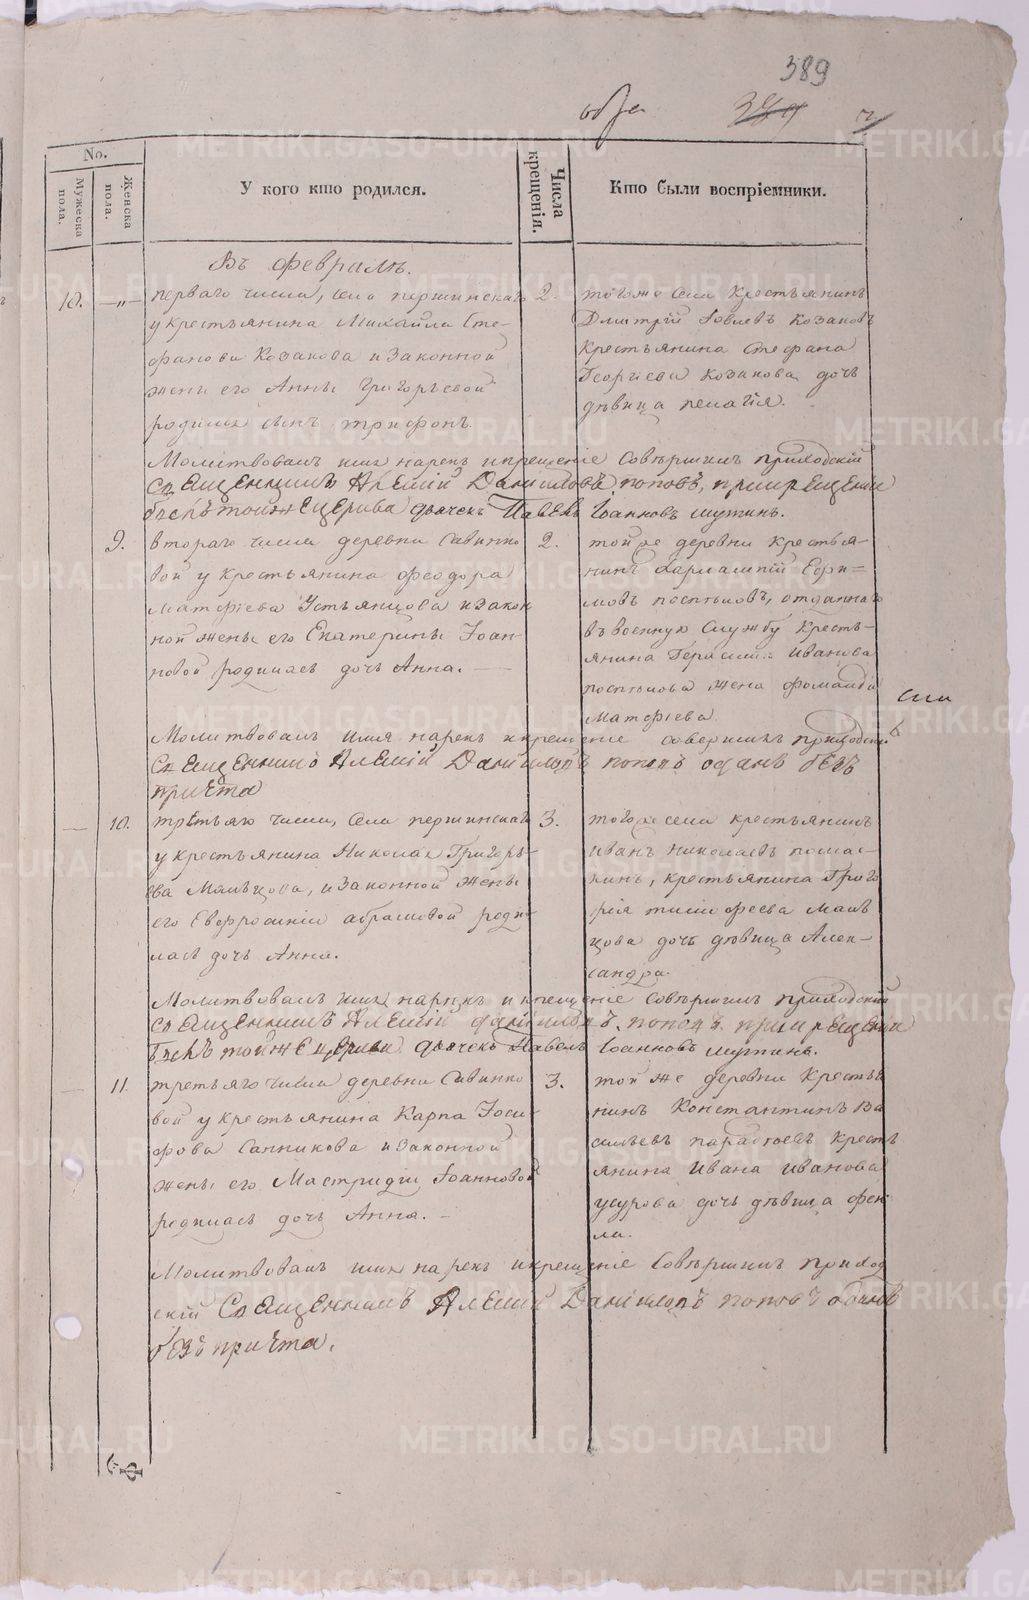 389
No.
Мужеска пола.
Женска пола.
У кого кто родился.
Числа крещенія.
Кто были воспріемники.
Въ февралѣ.
10. —„— перваго числа, села першинскаго 2.
у крестьянина Михаила Сте-
фанова Козакова и законной
жены его Анны Григорьевой
родился сынъ трифонъ.
тогоже села крестьянинъ
Дмитрій Іовлевъ Козаковъ
крестьянина Стефана
Георгіева Козакова дочь
дѣвица пелагія.
Молитвовалъ имя нарекъ и крещеніе совѣршилъ приходскій
священникъ Алеѯій Даніиловъ поповъ, при крещеніи
былъ тойже церкви дьячекъ Павелъ Іоанновъ
9. втораго числа деревни Савинко 2.
вой у крестьянина феодора
Матфіева Устьянцова и закон
ной жены его Екатерины Іоан-
новой родилась дочь Анна.
той же деревни крестья-
нинъ Ефи-
мовъ поспѣловъ, отданнаго
въ военную службу кресть-
янина Герасима Иванова
поспѣлова жена
Матфіева
Молитвовалъ имя нарекъ и крещеніе совершилъ приходскій
священникъ Алеѯій Даніиловъ поповъ одинъ безъ
причта
— 10. третьяго числа, села першинскаго 3.
у крестьянина Николая Григорь-
ева Мальцова, и законной жены
его Евфросиніи абрамовой роди-
лась дочь Анна.
тогоже села крестьянинъ
иванъ николаевъ
крестьянина Григо
рія тимофеева Маль
цова дочь дѣвица Алек-
сандра.
Молитвовалъ имя нарекъ и крещеніе совѣршилъ приходскій
священникъ Алеѯій даніиловъ поповъ при крещеніи
былъ тойже церкви дьячекъ Павелъ Іоанновъ
11. третьяго числа деревни Савинко 3.
вой у крестьянина Карпа Іоси-
фова Санникова и законной
жены его Мастридіи Іоанновой
родилась дочь Анна. —
той же деревни Кресть
нинъ Константинъ Ва
сильевъ Кресть
янина Ивана иванова
дочь дѣвица фек
ла.
Молитвовалъ имя нарекъ и крещеніе совѣршилъ приход
скій священникъ Алеѯій Даніиловъ поповъ одинъ
безъ причта.
METRIKI.GASO-URAL.RU